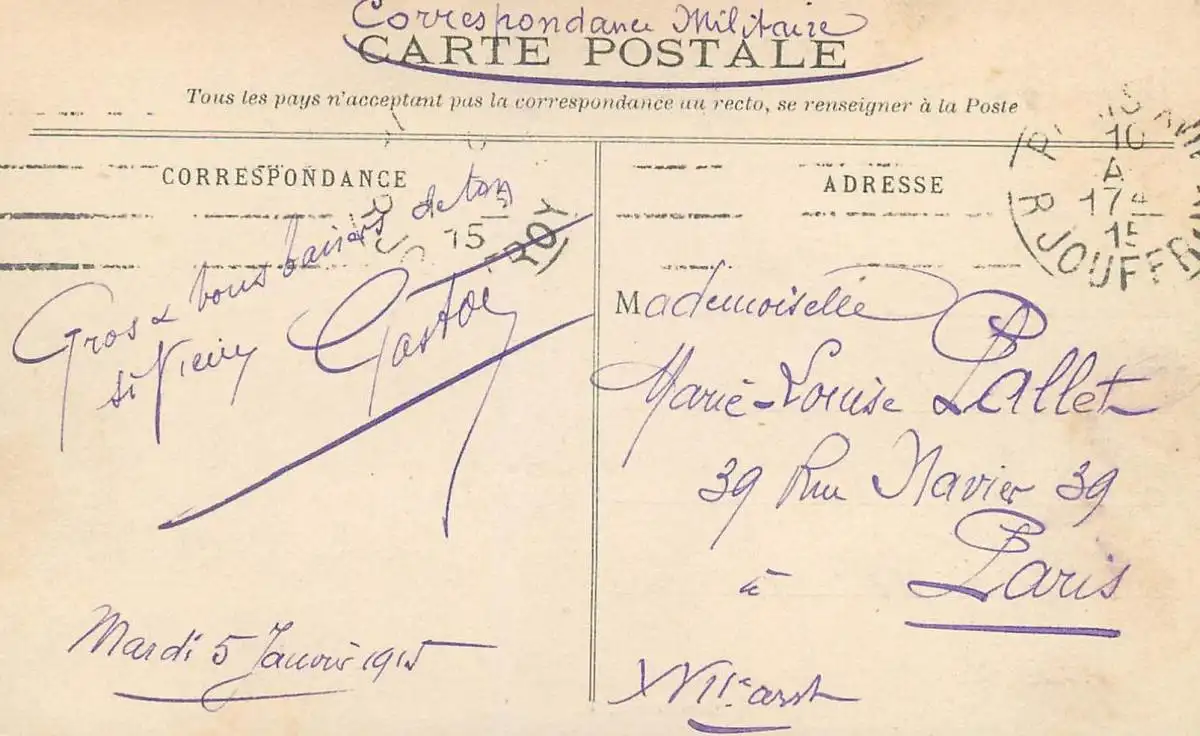 Correspondance Militaire
CARTE POSTALE
Tous les pays n'acceptant pas la correspondance au recto, se renseigner à la Poste
CORRESPONDANCE
Gros & bons baisers de ton
Gaston
Mardi 5 Janvier 1915
ADRESSE
Mademoiselle
Marie-Louise Pallet
39 Rue Navier 39
à Paris
XVIIe arrt
10
15
R JOUFFR
15